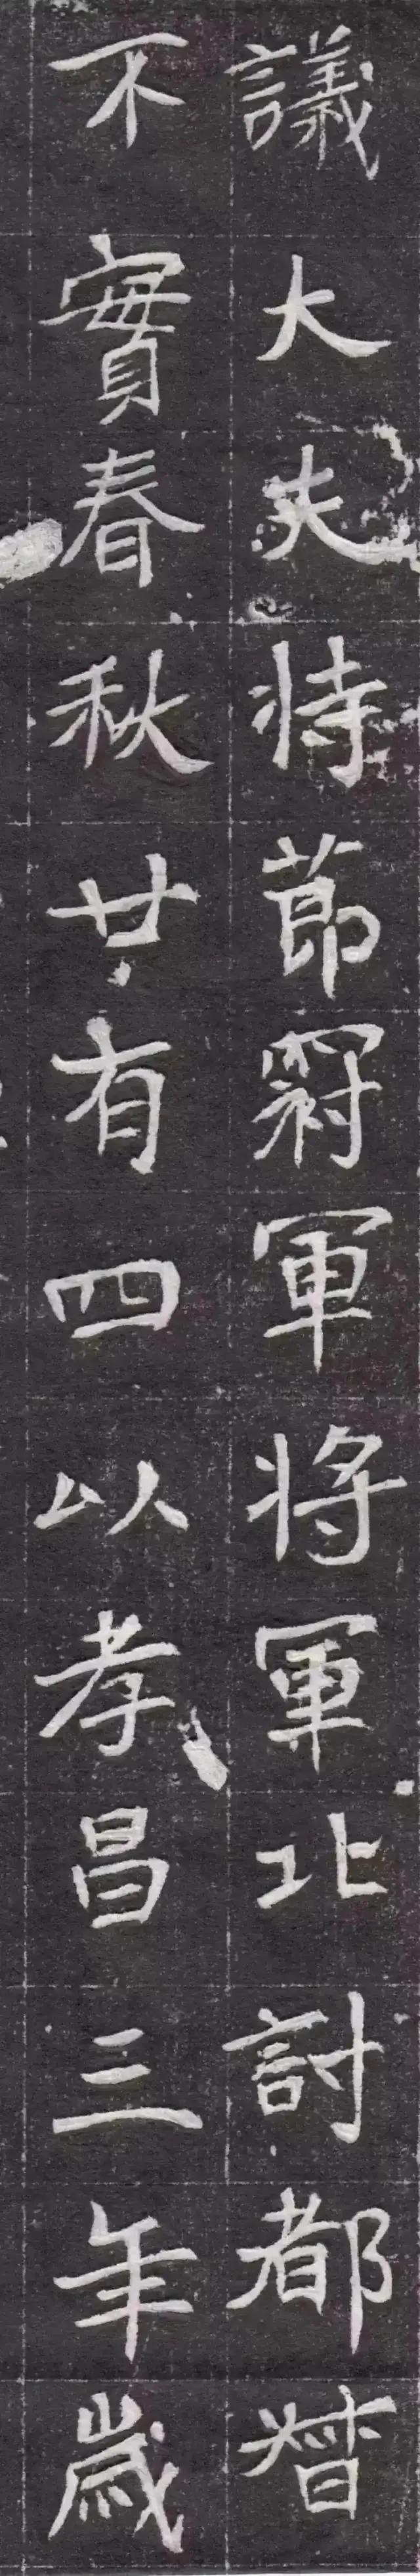 議大夫持節冠軍將軍北討都督
不實春秋廿有四以孝昌三年歲